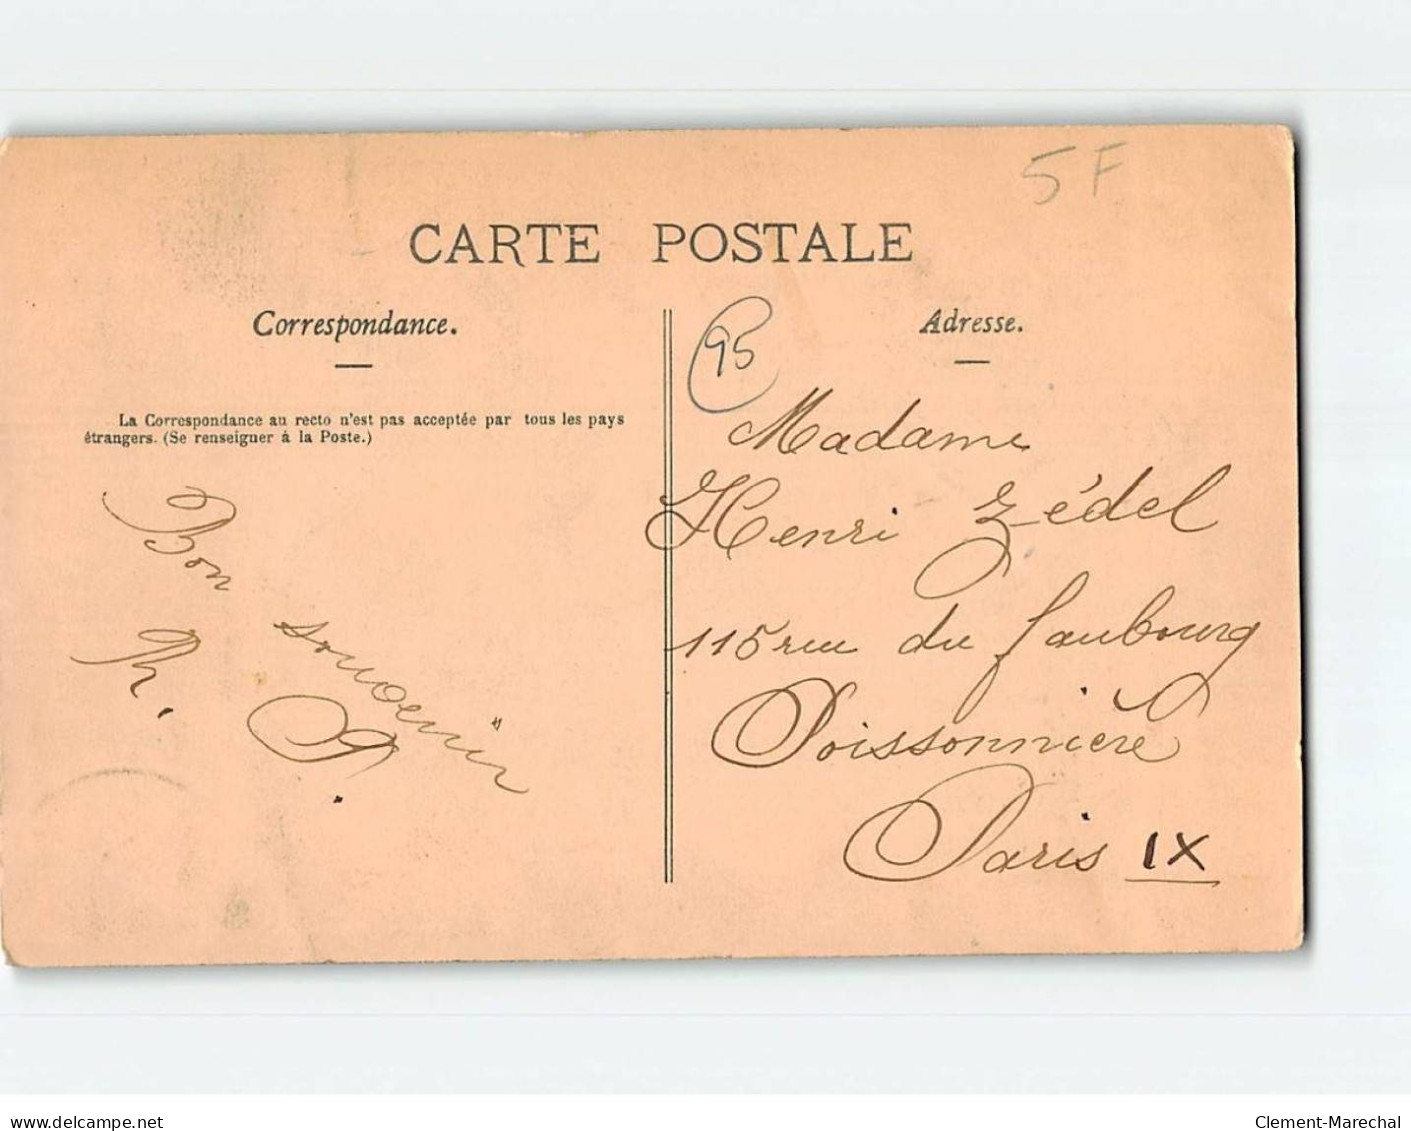 5F
CARTE POSTALE
Correspondance.
La Correspondance au recto n'est pas acceptée par tous les pays
étrangers. (Se renseigner à la Poste.)
Bon souvenir
R. P.
Adresse.
95
Madame
Henri Zédel
115 rue du faubourg
Poissonnière
Paris IX
www.delcampe.net
Clement-Marechal